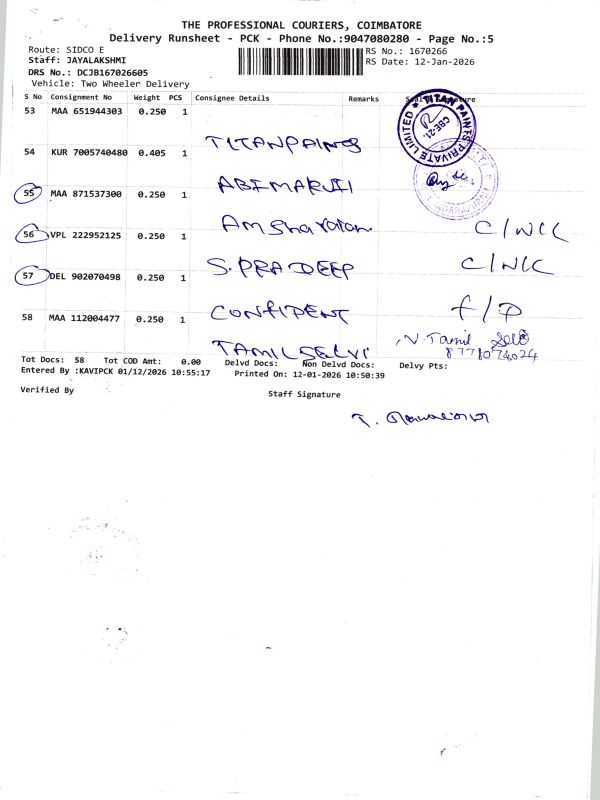 THE PROFESSIONAL COURIERS, COIMBATORE
Delivery Runsheet - PCK - Phone No.:9047080280 - Page No.:5
Route: SIDCO E
Staff: JAYALAKSHMI
DRS No.: DCJB167026605
Vehicle: Two Wheeler Delivery
RS No.: 1670266
RS Date: 12-Jan-2026
S No Consignment No Weight PCS Consignee Details Remarks
53 MAA 651944303 0.250 1
TITAN PAINTS
TITAN PAINTS PRIVATE LIMITED
CBE-21.
54 KUR 7005740480 0.405 1
ABIMARUTI
55 MAA 871537300 0.250 1
C/NCC
56 VPL 222952125 0.250 1
S.PRADEEP C/NCC
57 DEL 902070498 0.250 1
CONFIDENT
58 MAA 112004477 0.250 1
TAMILSELVI
N. Tamil
8771074024
Tot Docs: 58 Tot COD Amt: 0.00 Delvd Docs: Non Delvd Docs: Delvy Pts:
Entered By :KAVIPCK 01/12/2026 10:55:17 Printed On: 12-01-2026 10:50:39
Verified By Staff Signature